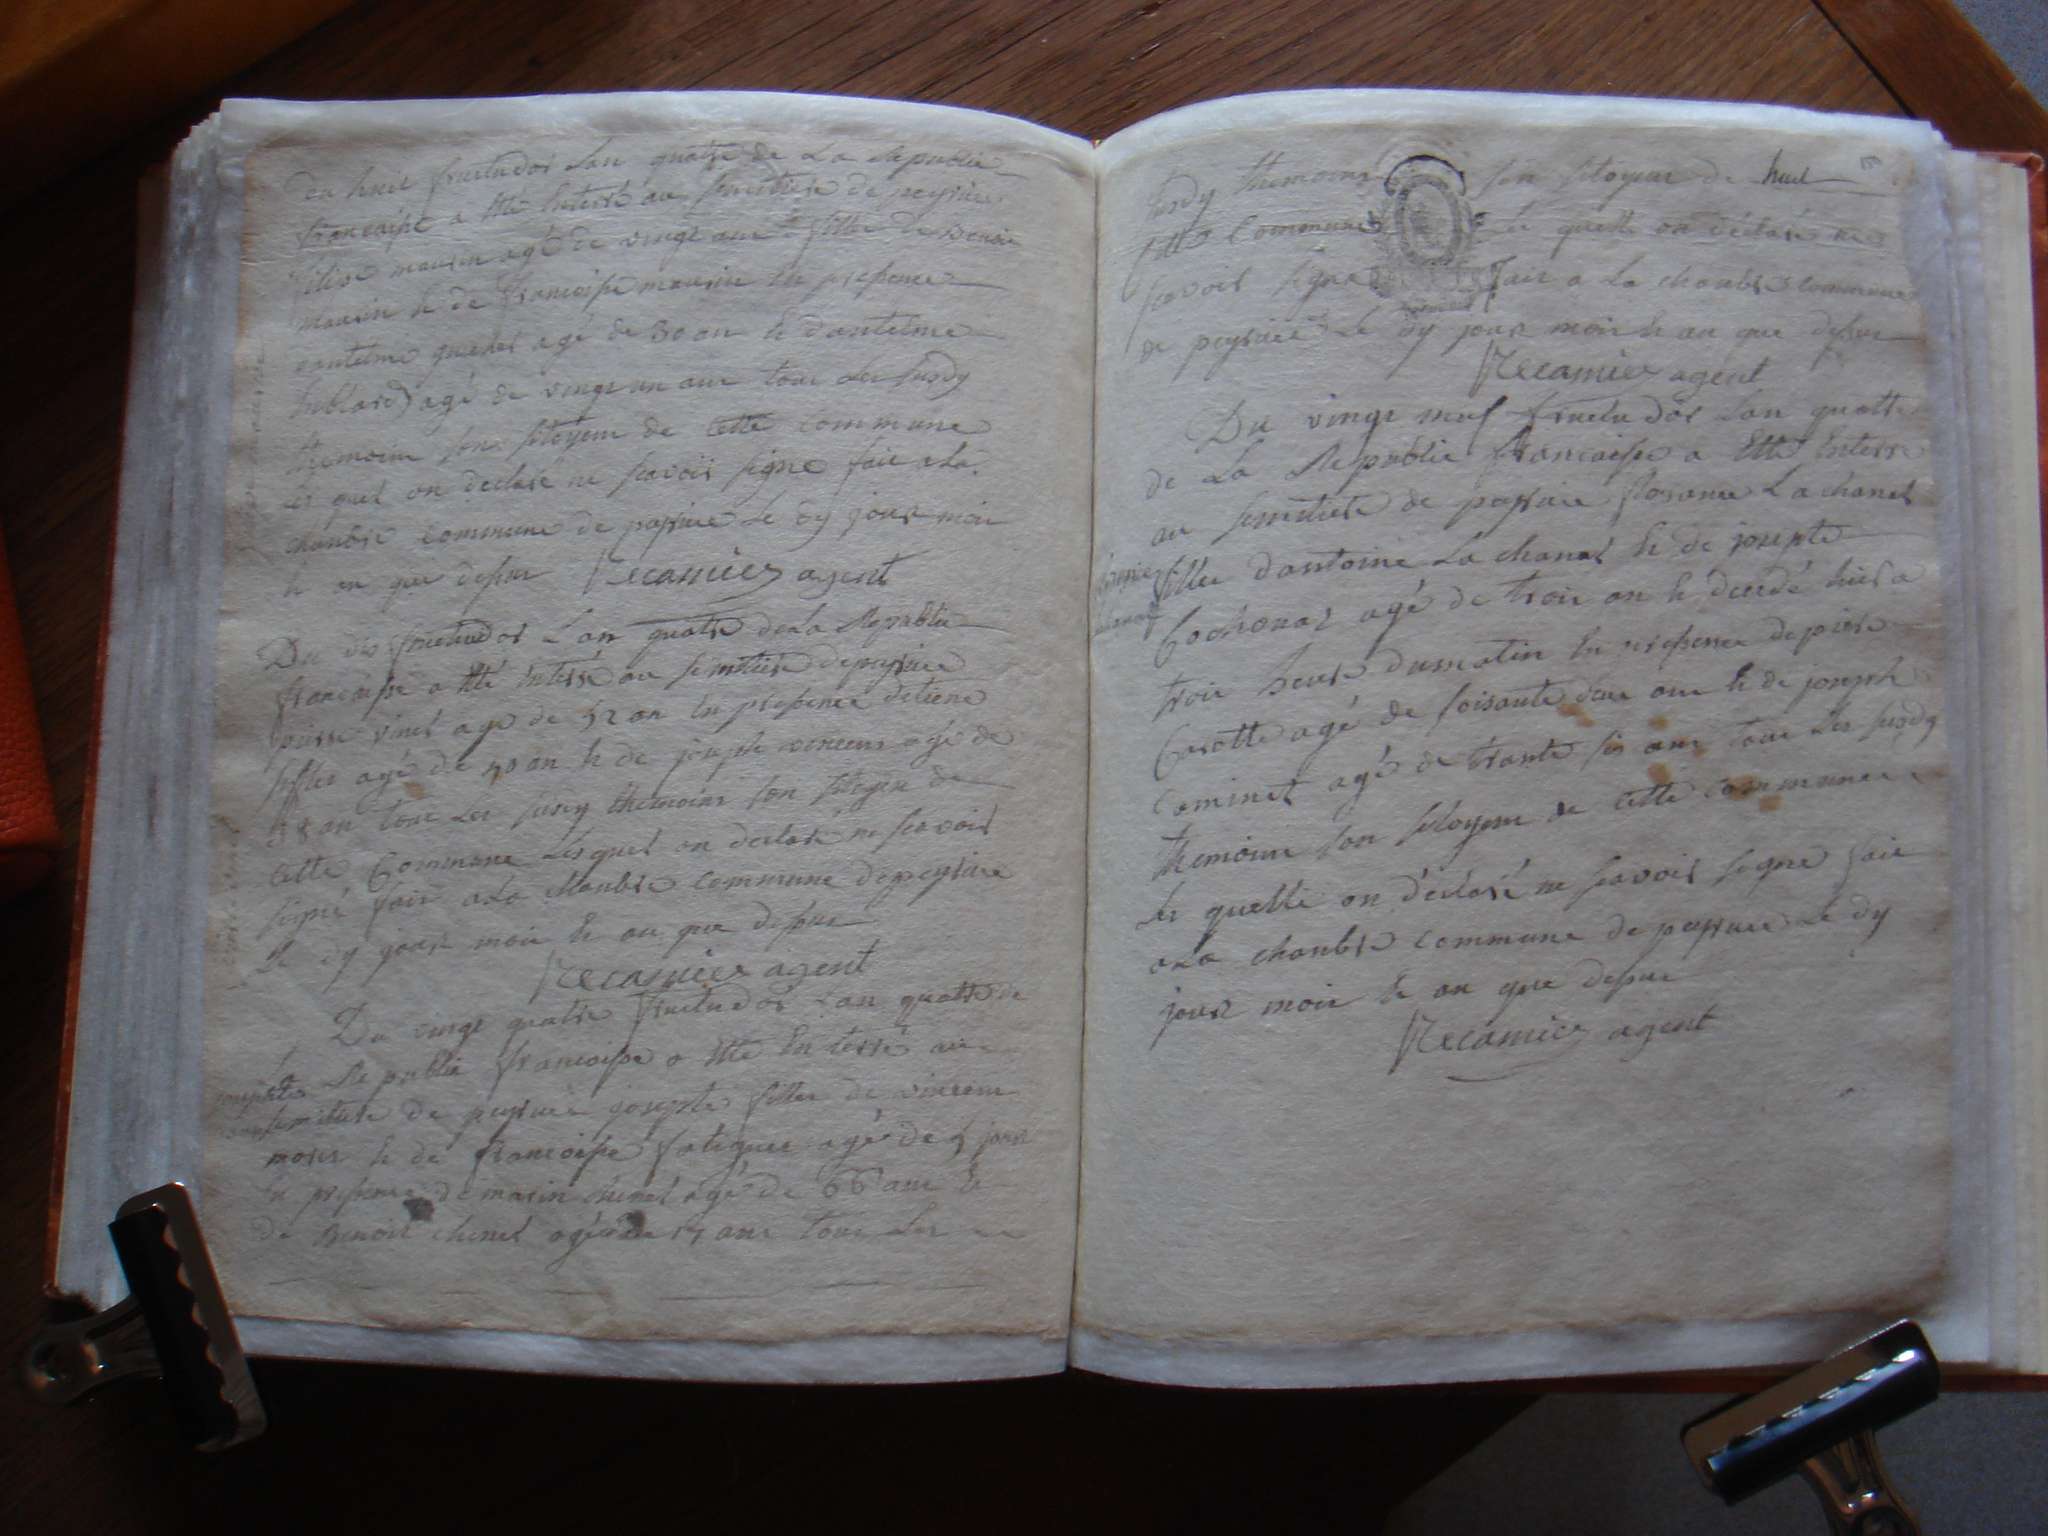 du huit fructudor Lan quatre de La Republic
francaise a Ete Enterré au semitiere de peyrieu
mausin agé de vingt ans fillie de Benoi
mausin E de francoise mausin En presence
agé de 30 an E dantelme
agé de vingt un ans tous Les susdy
themoins son sitoyens de cette commune
Les quel on declare ne scavoir signe fait a La
chanbre commune de peyrieu Le dy jour moi
E an que desus Recamier agent
Du dis fructudor Lan quatre de La Republic
francaise a Eté Enterré au semitiere de peyrieu
pierre vinet age de 52 an En presence detiene
agé de 50 an E de joseph vincens agé de
38 an tous Les susdy themoins son sitoyen de
cette Commune Lesquel on declare ne scavoir
signé fait a La Chanbre commune de peyrieu
Le dy jour moi E an que desus
Recamier agent
Du vingt quatre fructudor Lan quattre de
La Republic francaise a Ete Enterré au
josephte
semitiere de peyrieu josephte fillie de vincent
E de francoise agé de 5 jour
En presence de marin chenet agé de 66 ans E
de Benoit chenet agé de 17 ans tous Les
susdy themoins son sitoyens de huel
ditte Commune Les quelle on déclaré ne
scavoir signe Fait a La chanbre commune
de peyrieu Le dy jour moi E an que desus
Recamier agent
Du vingt neuf fructudor Lan quatte
de La Republic francaise a Ette Enterre
au semitiere de peyrieu La chanel
fillie dantoine La chanal E de josepte
Cochonat agé de troi an E decedé hier a
troi heure du matin En presence de piere
Carotte agé de soisante deus ans E de joseph
Cominet agé de trante sis ans tous Les susdy
themoins son sitoyens de cette commune
Les quelle on déclaré ne scavoir signe Fait
a La chanbre commune de peyrieu Le dy
jour moi E an que desus
Recamier agent